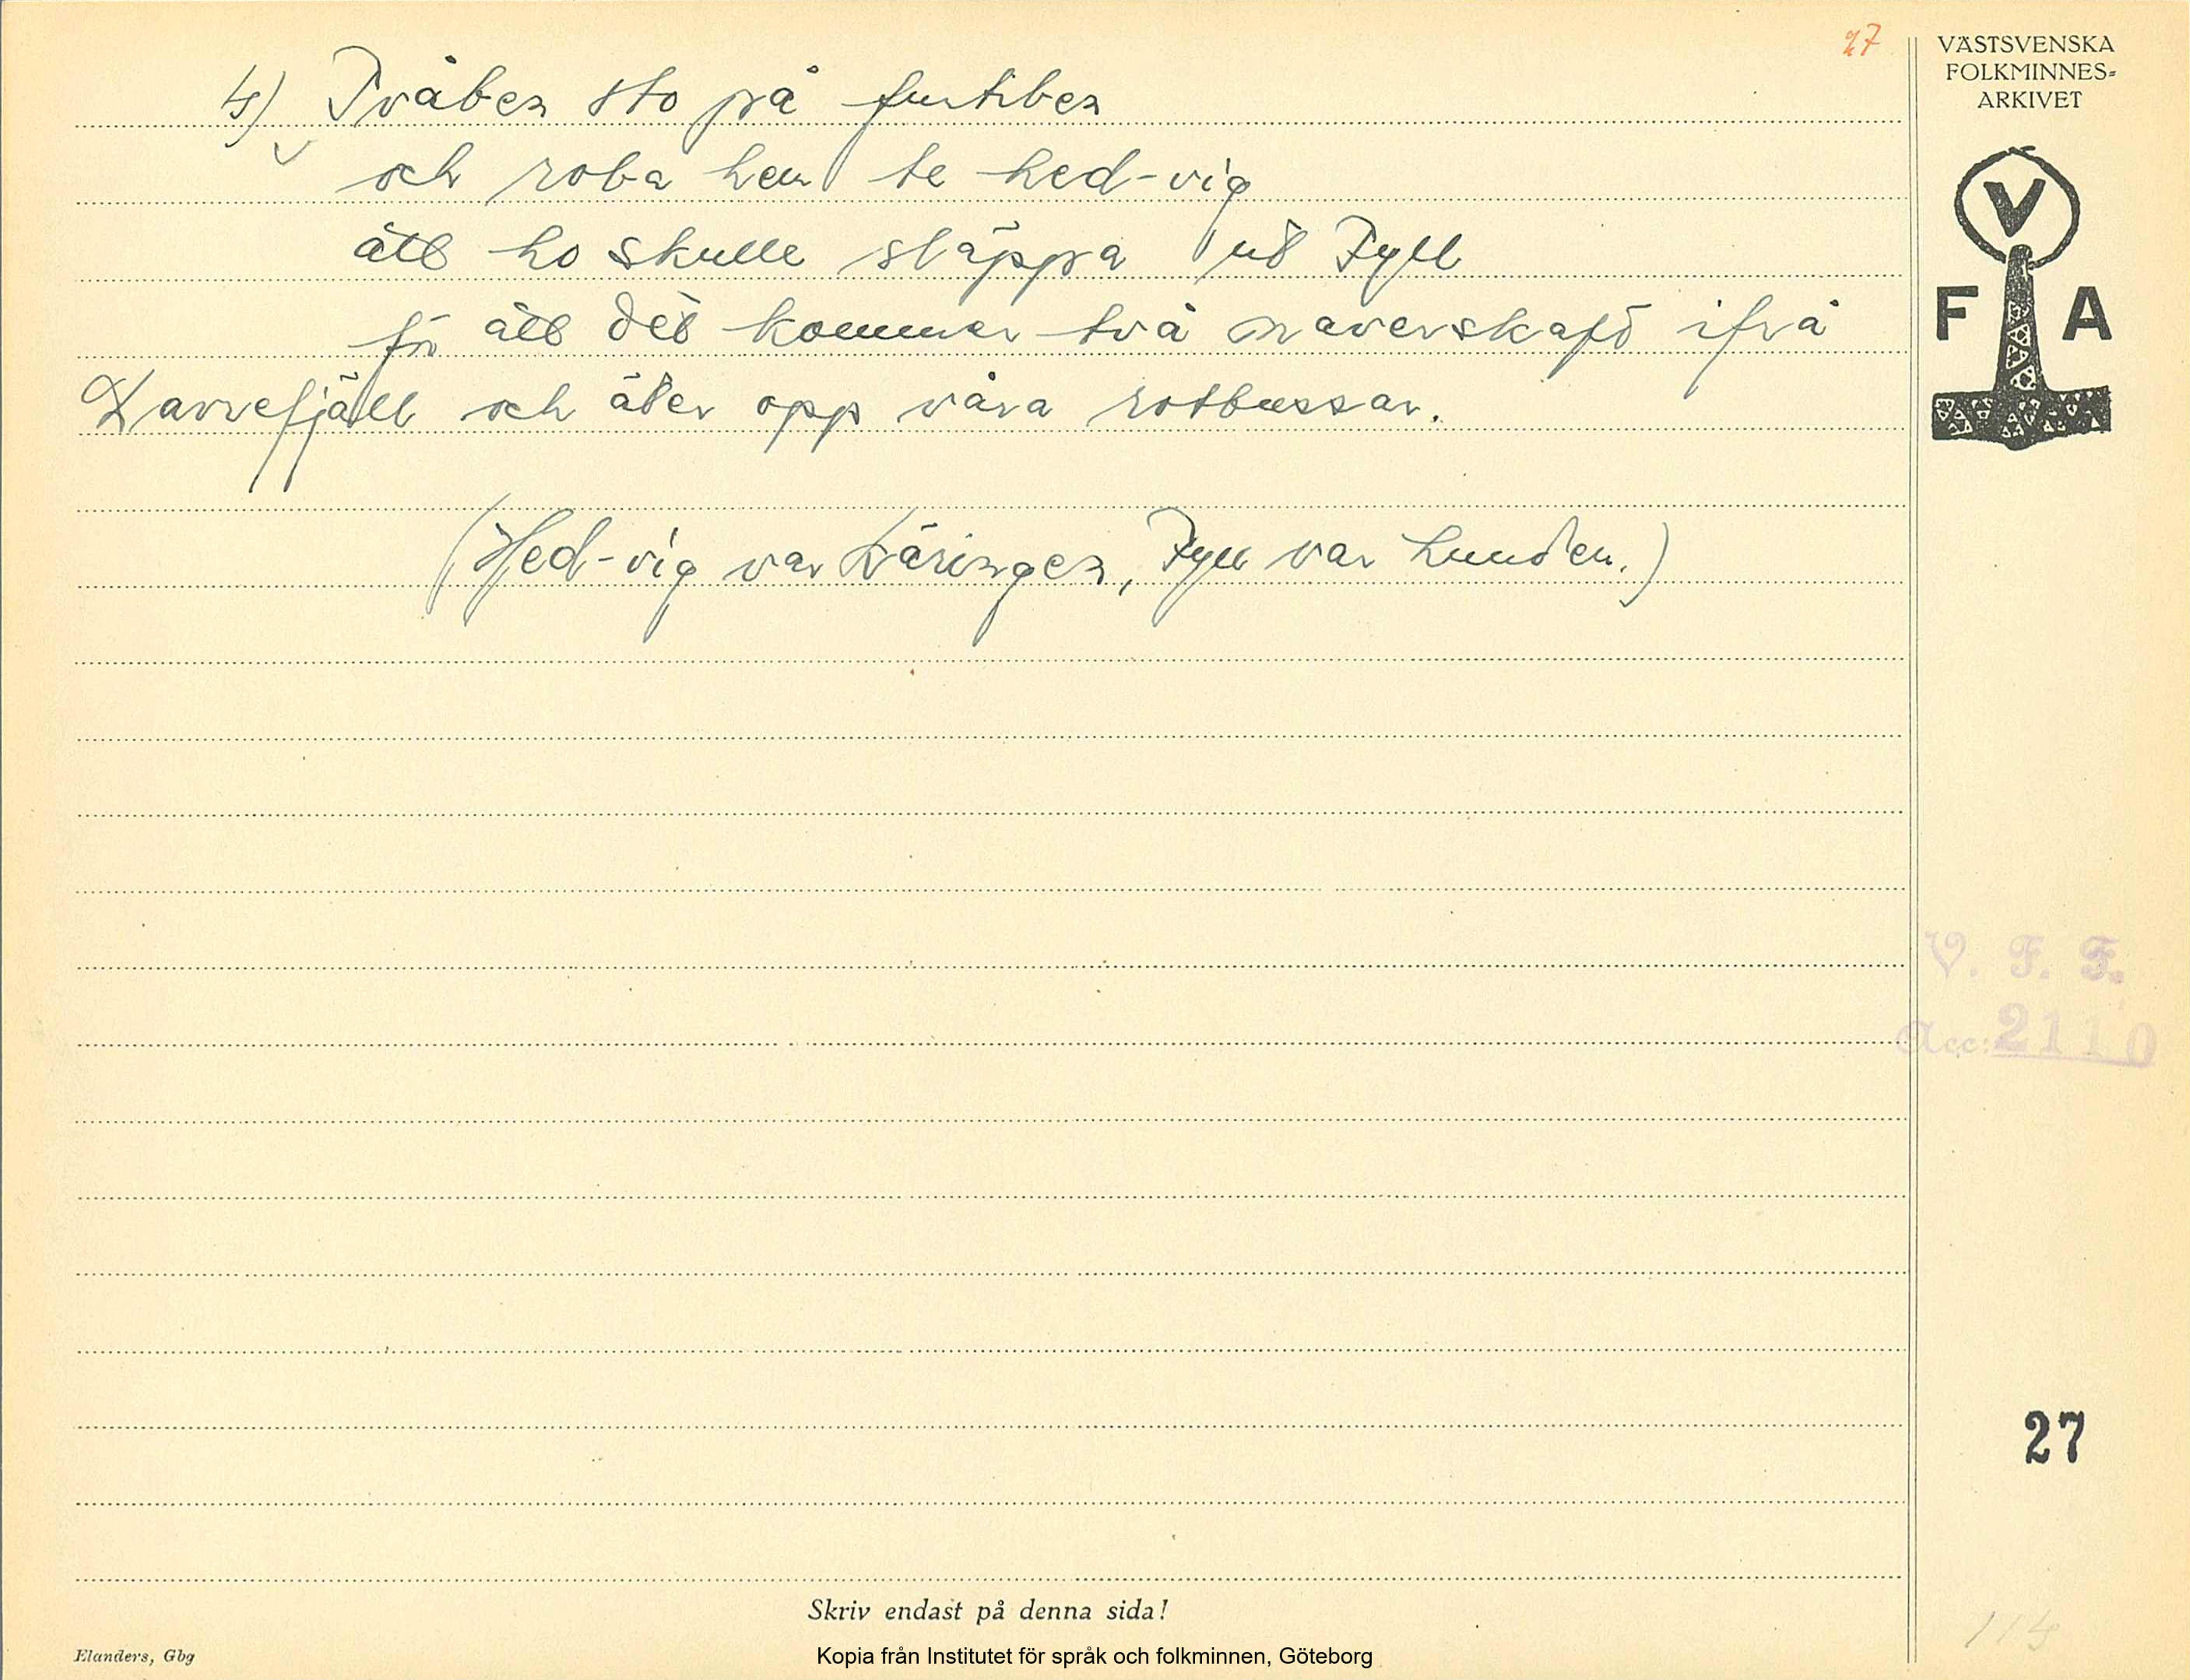 27
VÄSTSVENSKA
FOLKMINNES-
ARKIVET
V
F A
4) Tvåben sto på furtiben
och roba hem te hed-vig
ått ho skulle släppa ut Fyll
för ått dèt kommer två naverskaft ifrå
Larvefjäll och äter opp våra rotbussar.
(Hed-vig var käringen, Fyll var hunden.)
V. F. F.
Acc: 2110
27
114
Skriv endast på denna sida!
Elanders, Gbg
Kopia från Institutet för språk och folkminnen, Göteborg